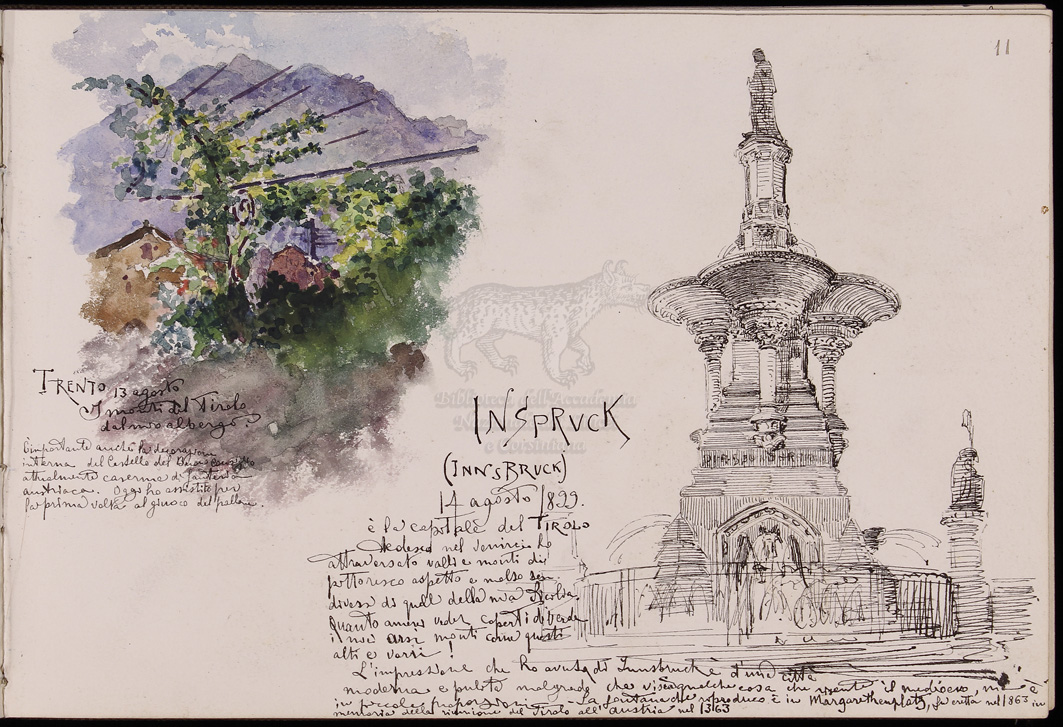 11
TRENTO 13 agosto
I monti del Tirolo
dal mio albergo.
importante anche la decorazione
interna del Castello del
attualmente caserma di fanteria
austriaca. Oggi ho assistito per
la prima volta al giuoco del pallone.
Biblioteca dell'Accademia
e Corsiniana
INSPRUCK
(INNSBRUCK)
14 agosto 1899.
è la capitale del TIROLO
tedesco nel venirci ho
attraversato valli e monti di
pittoresco aspetto e molto
diversi di quelli della mia Sicilia.
Quanto amerei veder coperti di verde
i miei arsi monti come questi
alti e varii!
L'impressione che ho avuto di Innsbruck è d'una città
moderna e pulita malgrado che vi sia qualche cosa che risente il medioevo, ma è
in piccole proporzioni. La fontana che riproduco è in Margarethenplatz, fu eretta nel 1863 in
memoria della riunione del Tirolo all'Austria nel 1363